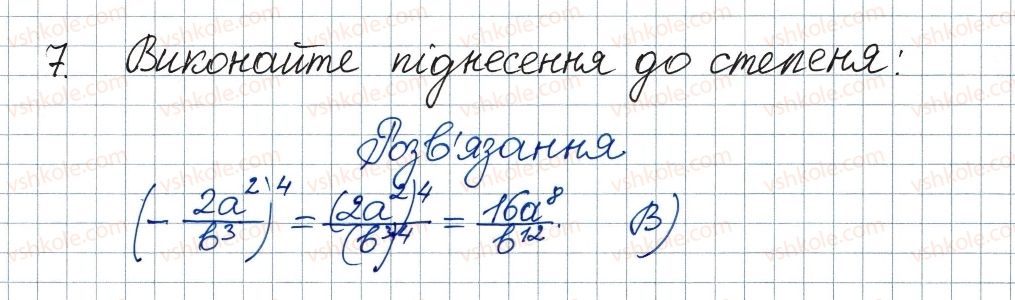 7. Виконайте піднесення до степеня:
Розв'язання
(-2a²/b³)⁴ = (2a²)⁴/(b³)⁴ = 16a⁸/b¹². В)